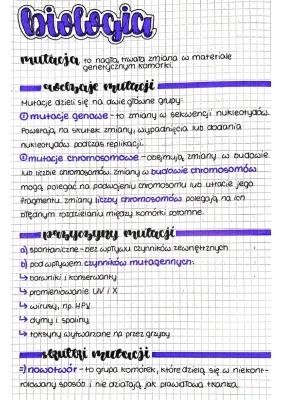 biologia
mutacja to nagła, trwała zmiana w materiale
genetycznym komórki.
rodzaje mutacji
Mutacje dzieli się na dwie główne grupy:
① mutacje genowe - to zmiany w sekwencji nukleotydów.
Powstają na skutek zmiany, wypadnięcia lub dodania
nukleotydów podczas replikacji.
② mutacje chromosomowe - obejmują zmiany w budowie
lub liczbie chromosomów. zmiany w budowie chromosomów
mogą polegać na podwojeniu chromosomu lub utracie jego
fragmentu. zmiany liczby chromosomów polegają na ich
błędnym rozdzielaniu między komórki potomne.
przyczyny mutacji
a) spontaniczne - bez wpływu czynników zewnętrznych
b) pod wpływem czynników mutagennych:
↳ barwniki i konserwanty
↳ promieniowanie UV i X
↳ wirusy, np. HPV
↳ dymy i spaliny
↳ toksyny wytwarzane na przez grzyby
skutki mutacji
⇒ nowotwór - to grupa komórek, które dzielą się w niekont-
rolowany sposób i nie działają jak prawidłowa tkanka.